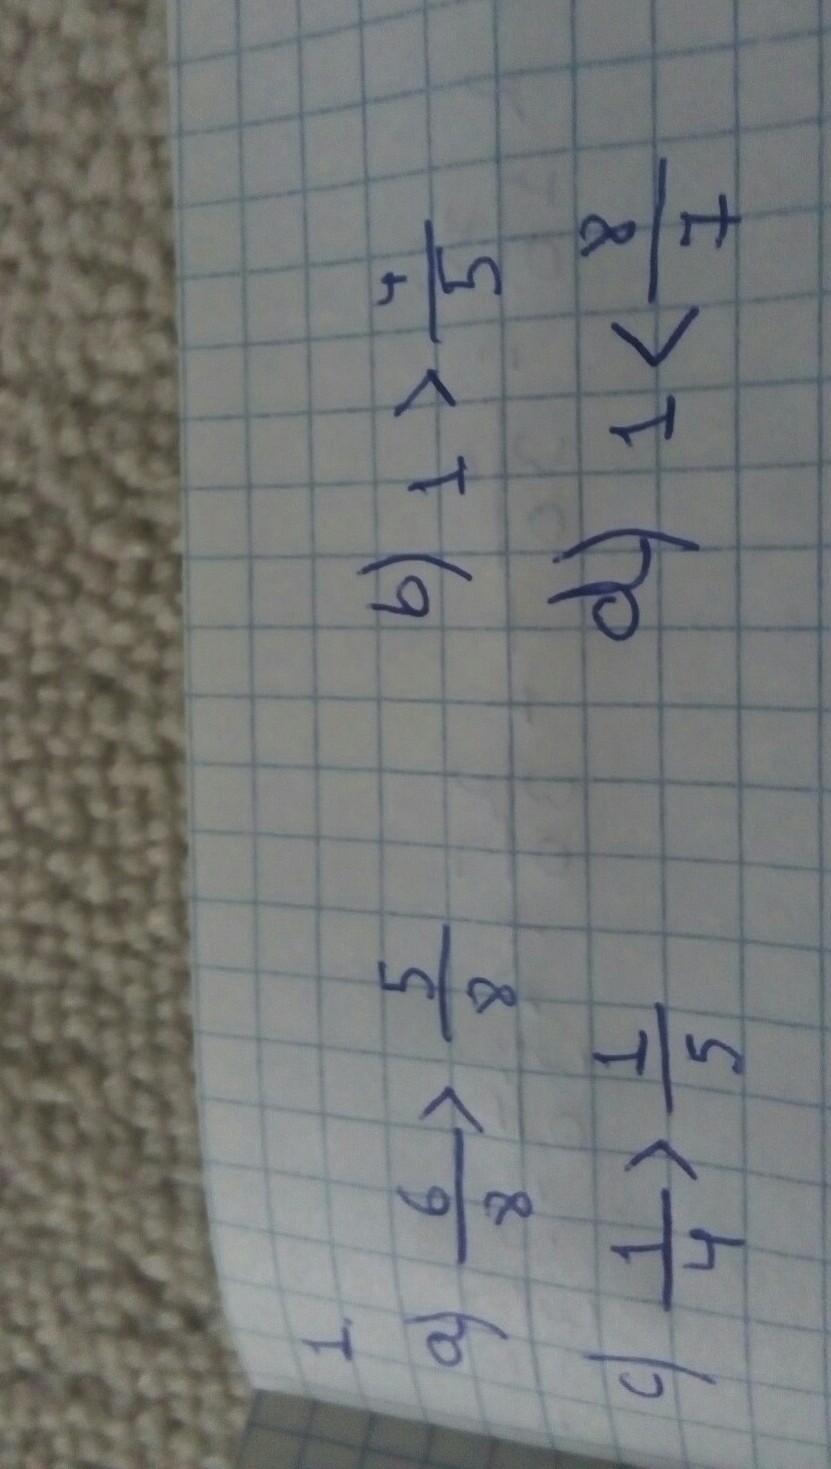 1.
a) 6/8 > 5/8 b) 1 > 4/5
c) 1/4 > 1/5 d) 1 < 8/7